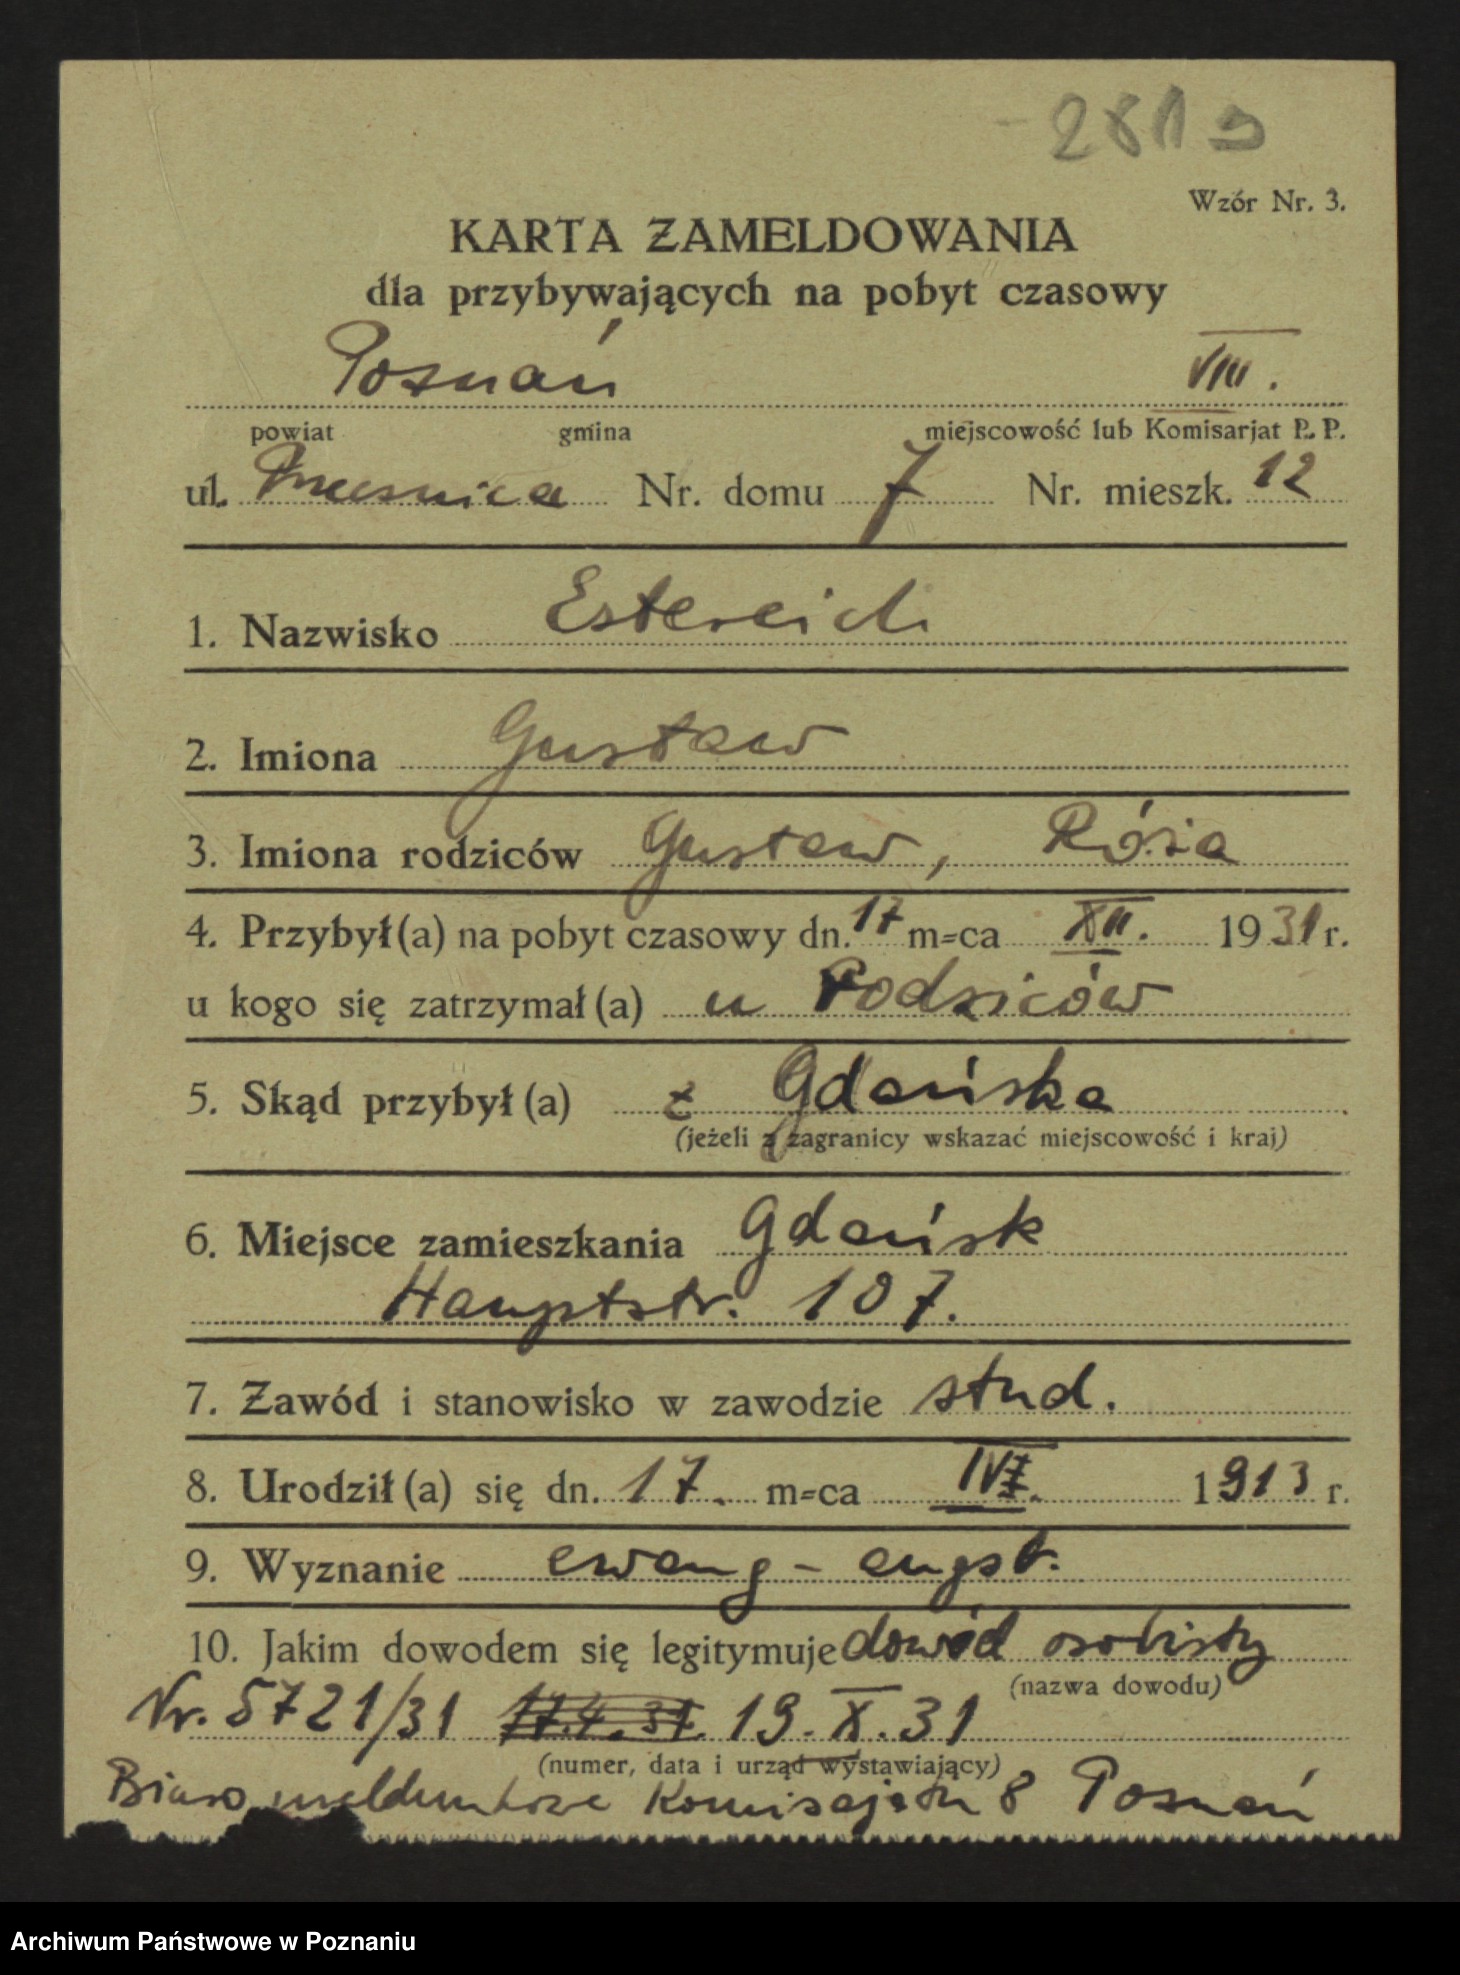 2819
Wzór Nr. 3.
KARTA ZAMELDOWANIA
dla przybywających na pobyt czasowy
Poznań VIII.
powiat gmina miejscowość lub Komisarjat P. P.
ul. Nr. domu 7 Nr. mieszk. 12
1. Nazwisko Estereich
2. Imiona Gustaw
3. Imiona rodziców Gustaw, Róża
4. Przybył(a) na pobyt czasowy dn. 17 m-ca XII. 1931 r.
u kogo się zatrzymał(a) u Rodziców
5. Skąd przybył(a) z Gdańska
(jeżeli z zagranicy wskazać miejscowość i kraj)
6. Miejsce zamieszkania Gdańsk
Hauptstr. 107.
7. Zawód i stanowisko w zawodzie stud.
8. Urodził(a) się dn. 17. m-ca 1913 r.
9. Wyznanie ewang - augst.
10. Jakim dowodem się legitymuje dowód osobisty
(nazwa dowodu)
Nr. 5721/31 17.4.31. 19.X.31
(numer, data i urząd wystawiający)
Biuro meldunkowe Komisarjatu 8 Poznań
Archiwum Państwowe w Poznaniu